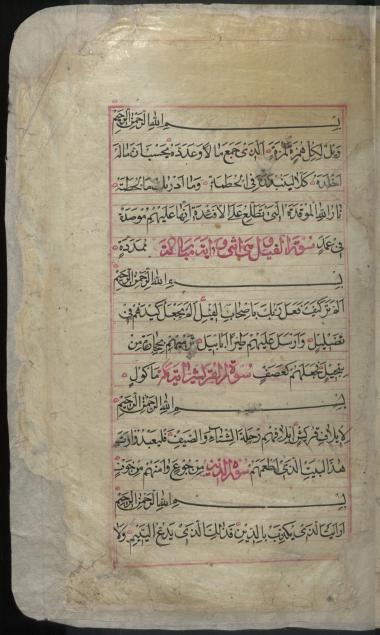 بسم الله الرحمن الرحيم
ويل لكل همزة لمزة الذى جمع مالا وعدده يحسب ان ماله
اخلده كلا لينبذن فى الحطمة وما ادريك ما الحطمة
نار الله الموقدة التى تطلع على الافئدة انها عليهم موصدة
فى عمد ممددة سورة الفيل
بسم الله الرحمن الرحيم
الم تر كيف فعل ربك باصحاب الفيل الم يجعل كيدهم فى
تضليل وارسل عليهم طيرا ابابيل ترميهم بحجارة من
سجيل فجعلهم كعصف ماكول سورة
بسم الله الرحمن الرحيم
لايلاف قريش ايلافهم رحلة الشتاء والصيف فليعبدوا رب
هذا البيت الذى اطعمهم من جوع وامنهم من خوف سورة الدين
بسم الله الرحمن الرحيم
ارايت الذى يكذب بالدين فذلك الذى يدع اليتيم ولا